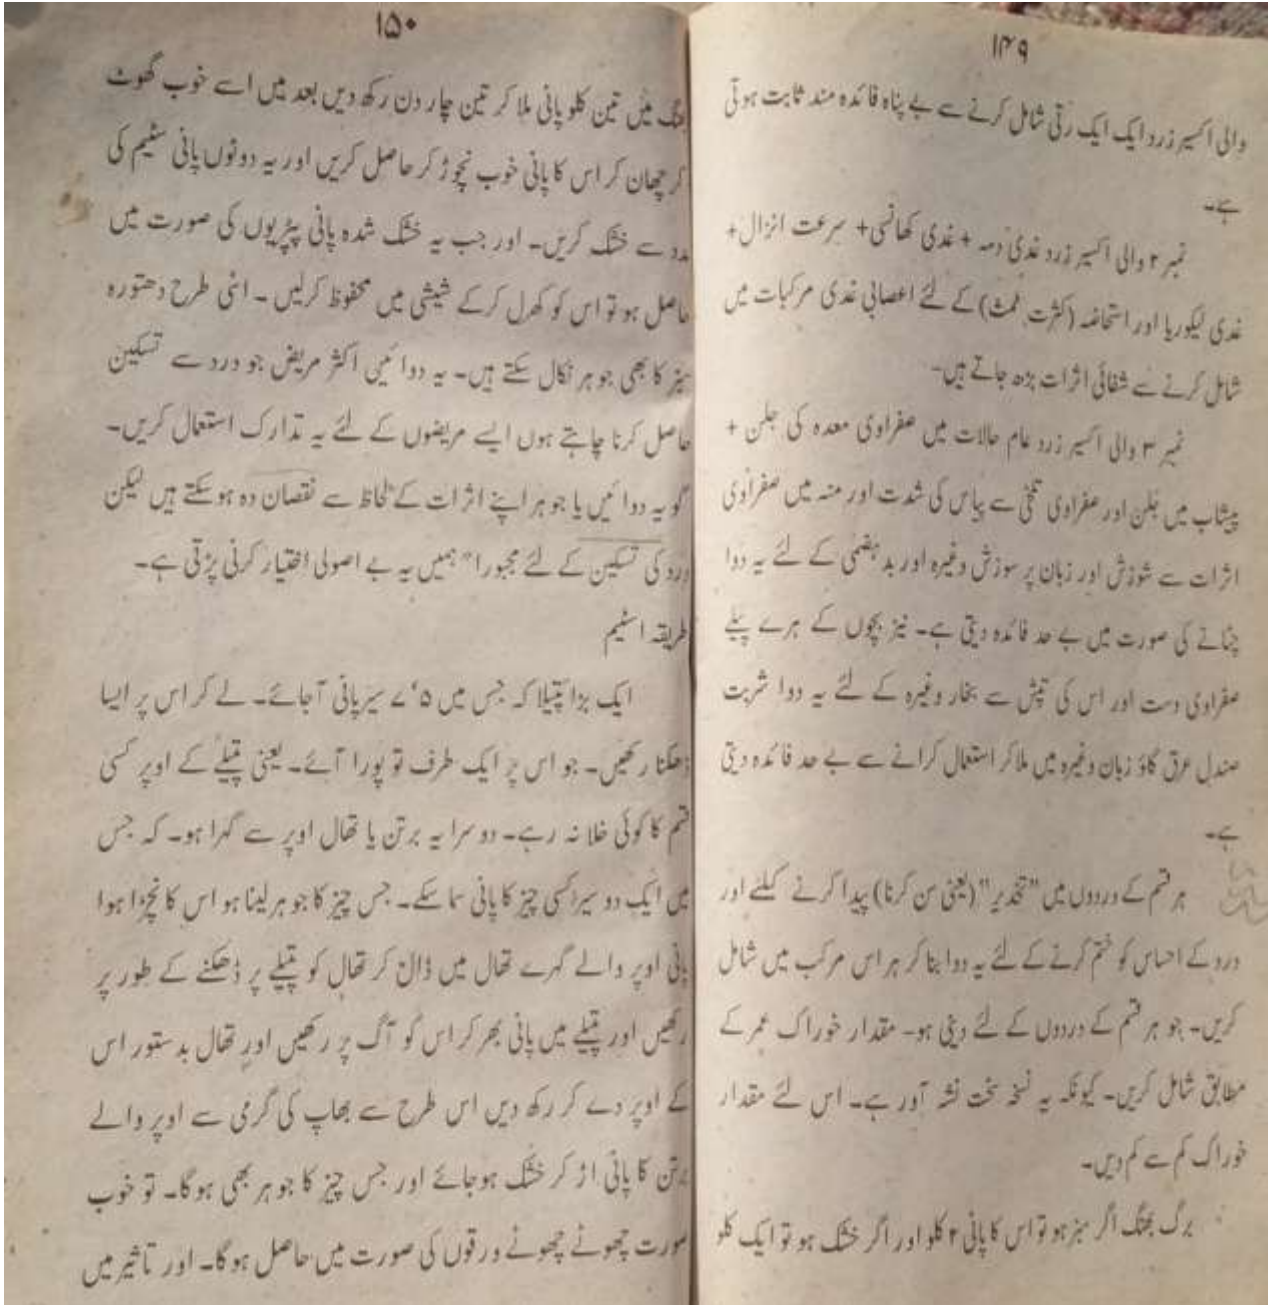 ۱۴۹
والی اکسیر زرد ایک ایک رتی شامل کرنے سے بے پناہ فائدہ مند ثابت ہوتی
ہے۔
نمبر ۲ والی اکسیر زرد غدی دمہ + غدی کھانسی + سرعت انزال +
غدی لیکوریا اور استحاضہ (کثرت طمث) کے لئے اعصابی غدی مرکبات میں
شامل کرنے سے شفائی اثرات بڑھ جاتے ہیں۔
نمبر ۳ والی اکسیر زرد عام حالات میں صفراوی معدہ کی جلن +
پیشاب میں جلن اور صفراوی تلخی سے پیاس کی شدت اور منہ میں صفراوی
اثرات سے شوزش اور زبان پر سوزش وغیرہ اور بدہضمی کے لئے یہ دوا
چٹانے کی صورت میں بے حد فائدہ دیتی ہے۔ نیز بچوں کے ہرے پیلے
صفراوی دست اور اس کی تپش سے بخار وغیرہ کے لئے یہ دوا شربت
صندل عرق گاؤ زبان وغیرہ میں ملا کر استعمال کرانے سے بے حد فائدہ دیتی
ہے۔
ہر قسم کے دردوں میں "تخدیر" (یعنی سن کرنا) پیدا کرنے کیلئے اور
درد کے احساس کو ختم کرنے کے لئے یہ دوا بنا کر ہر اس مرکب میں شامل
کریں۔ جو ہر قسم کے دردوں کے لئے دینی ہو۔ مقدار خوراک عمر کے
مطابق شامل کریں۔ کیونکہ یہ نسخہ سخت نشہ آور ہے۔ اس لئے مقدار
خوراک کم سے کم دیں۔
برگ بھنگ اگر سبز ہو تو اس کا پانی ۲ کلو اور اگر خشک ہو تو ایک کلو
۱۵۰
بھنگ میں تین کلو پانی ملا کر تین چار دن رکھ دیں بعد میں اسے خوب گھوٹ
کر چھان کر اس کا پانی خوب نچوڑ کر حاصل کریں اور یہ دونوں پانی سٹیم کی
مدد سے خشک کریں۔ اور جب یہ خشک شدہ پانی پپڑیوں کی صورت میں
حاصل ہو تو اس کو کھرل کرکے شیشی میں محفوظ کرلیں۔ اسی طرح دھتورہ
سبز کا بھی جوہر نکال سکتے ہیں۔ یہ دوائیں اکثر مریض جو درد سے تسکین
حاصل کرنا چاہتے ہوں ایسے مریضوں کے لئے یہ تدارک استعمال کریں۔
گو یہ دوائیں یا جوہر اپنے اثرات کے لحاظ سے نقصان دہ ہوسکتے ہیں لیکن
درد کی تسکین کے لئے مجبورا" ہمیں یہ بے اصولی اختیار کرنی پڑتی ہے۔
طریقہ اسٹیم
ایک بڑا پتیلا کہ جس میں ۵‘ ۷ سیر پانی آجائے۔ لے کر اس پر ایسا
ڈھکنا رکھیں۔ جو اس پر ایک طرف تو پورا آئے۔ یعنی پتیلے کے اوپر کسی
قسم کا کوئی خلا نہ رہے۔ دوسرا یہ برتن یا تھال اوپر سے گہرا ہو۔ کہ جس
میں ایک دو سیر کسی چیز کا پانی سما سکے۔ جس چیز کا جوہر لینا ہو اس کا نچڑا ہوا
پانی اوپر والے گہرے تھال میں ڈال کر تھال کو پتیلے پر ڈھکنے کے طور پر
رکھیں اور پتیلے میں پانی بھر کر اس کو آگ پر رکھیں اور تھال بدستور اس
کے اوپر دے کر رکھ دیں اس طرح سے بھاپ کی گرمی سے اوپر والے
برتن کا پانی اڑ کر خشک ہوجائے اور جس چیز کا جوہر بھی ہوگا۔ تو خوب
صورت چھوٹے چھوٹے ورقوں کی صورت میں حاصل ہوگا۔ اور تاثیر میں